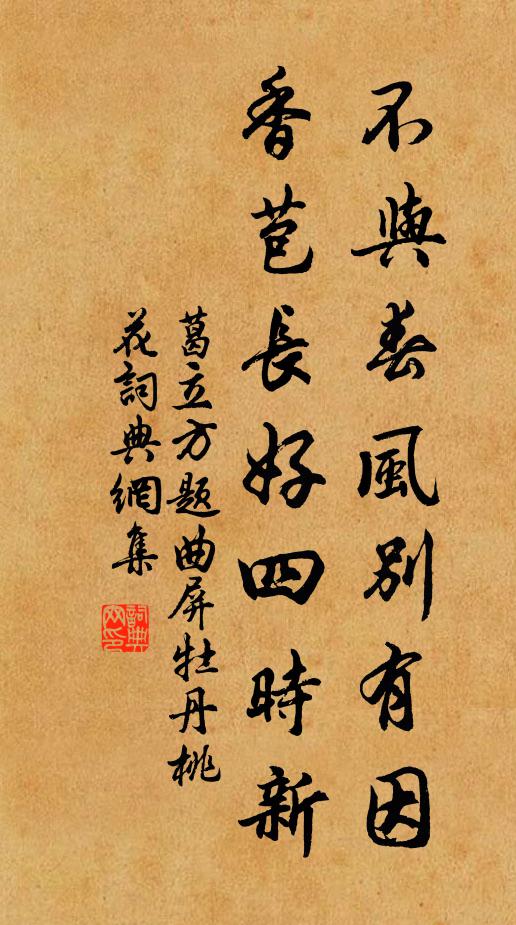 不與春風別有因
香苞長好四時新
葛立方題曲屏牡丹桃
花詞典網集
詞典
网印